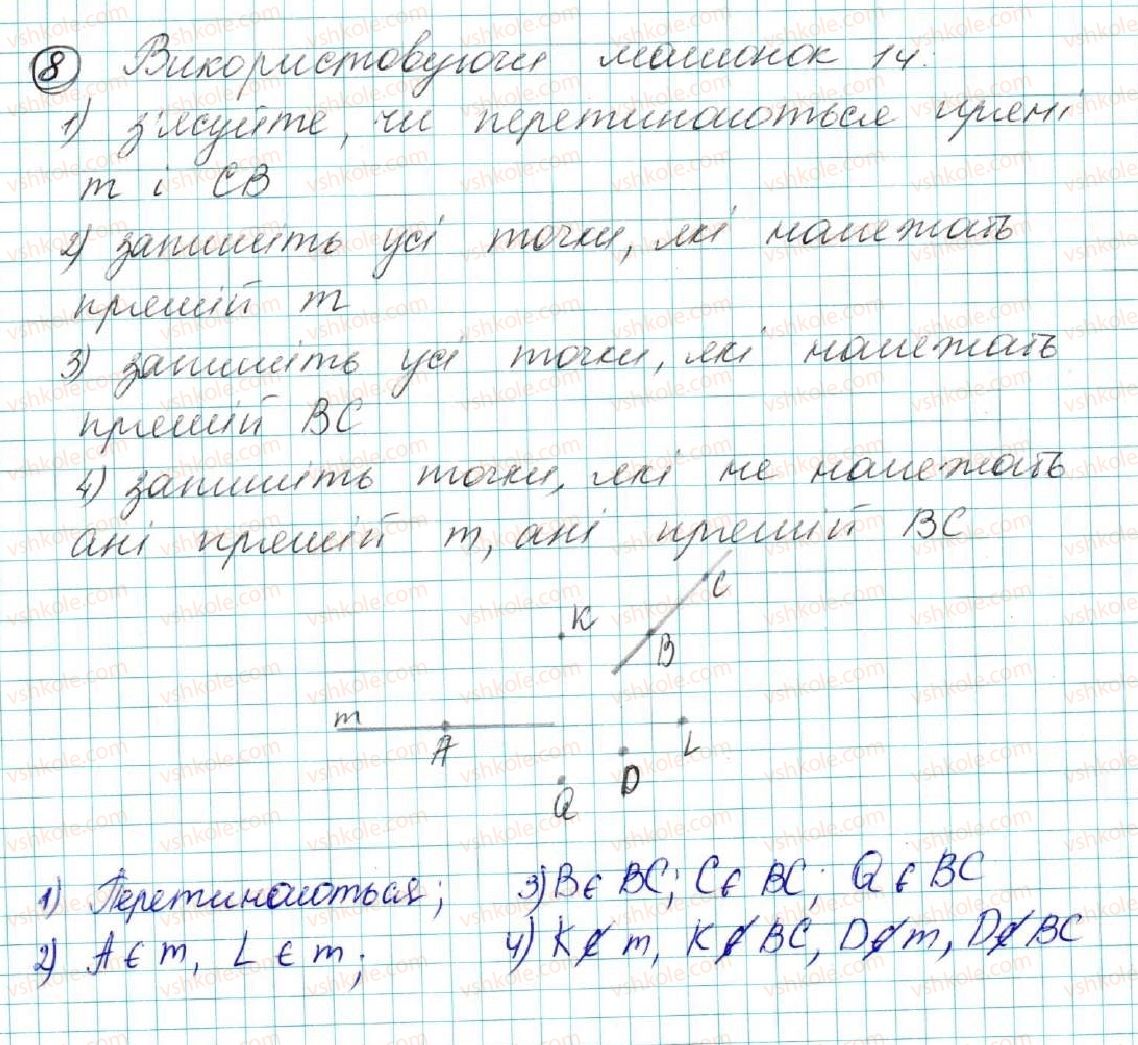 8 Використовуючи малюнок 14:
1) з'ясуйте, чи перетинаються прямі
m і CB
2) запишіть усі точки, які належать
прямій m
3) запишіть усі точки, які належать
прямій BC
4) запишіть точки, які не належать
ані прямій m, ані прямій BC
C
K
B
m
A
L
D
Q
1) Перетинаються; 3) B ∈ BC; C ∈ BC; Q ∈ BC
2) A ∈ m, L ∈ m; 4) K ∉ m, K ∉ BC, D ∉ m, D ∉ BC
vshkole.com